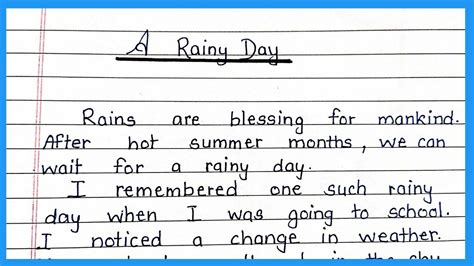 A Rainy Day
Rains are blessing for mankind.
After hot summer months, we can
wait for a rainy day.
I remembered one such rainy
day when I was going to school.
I noticed a change in weather.